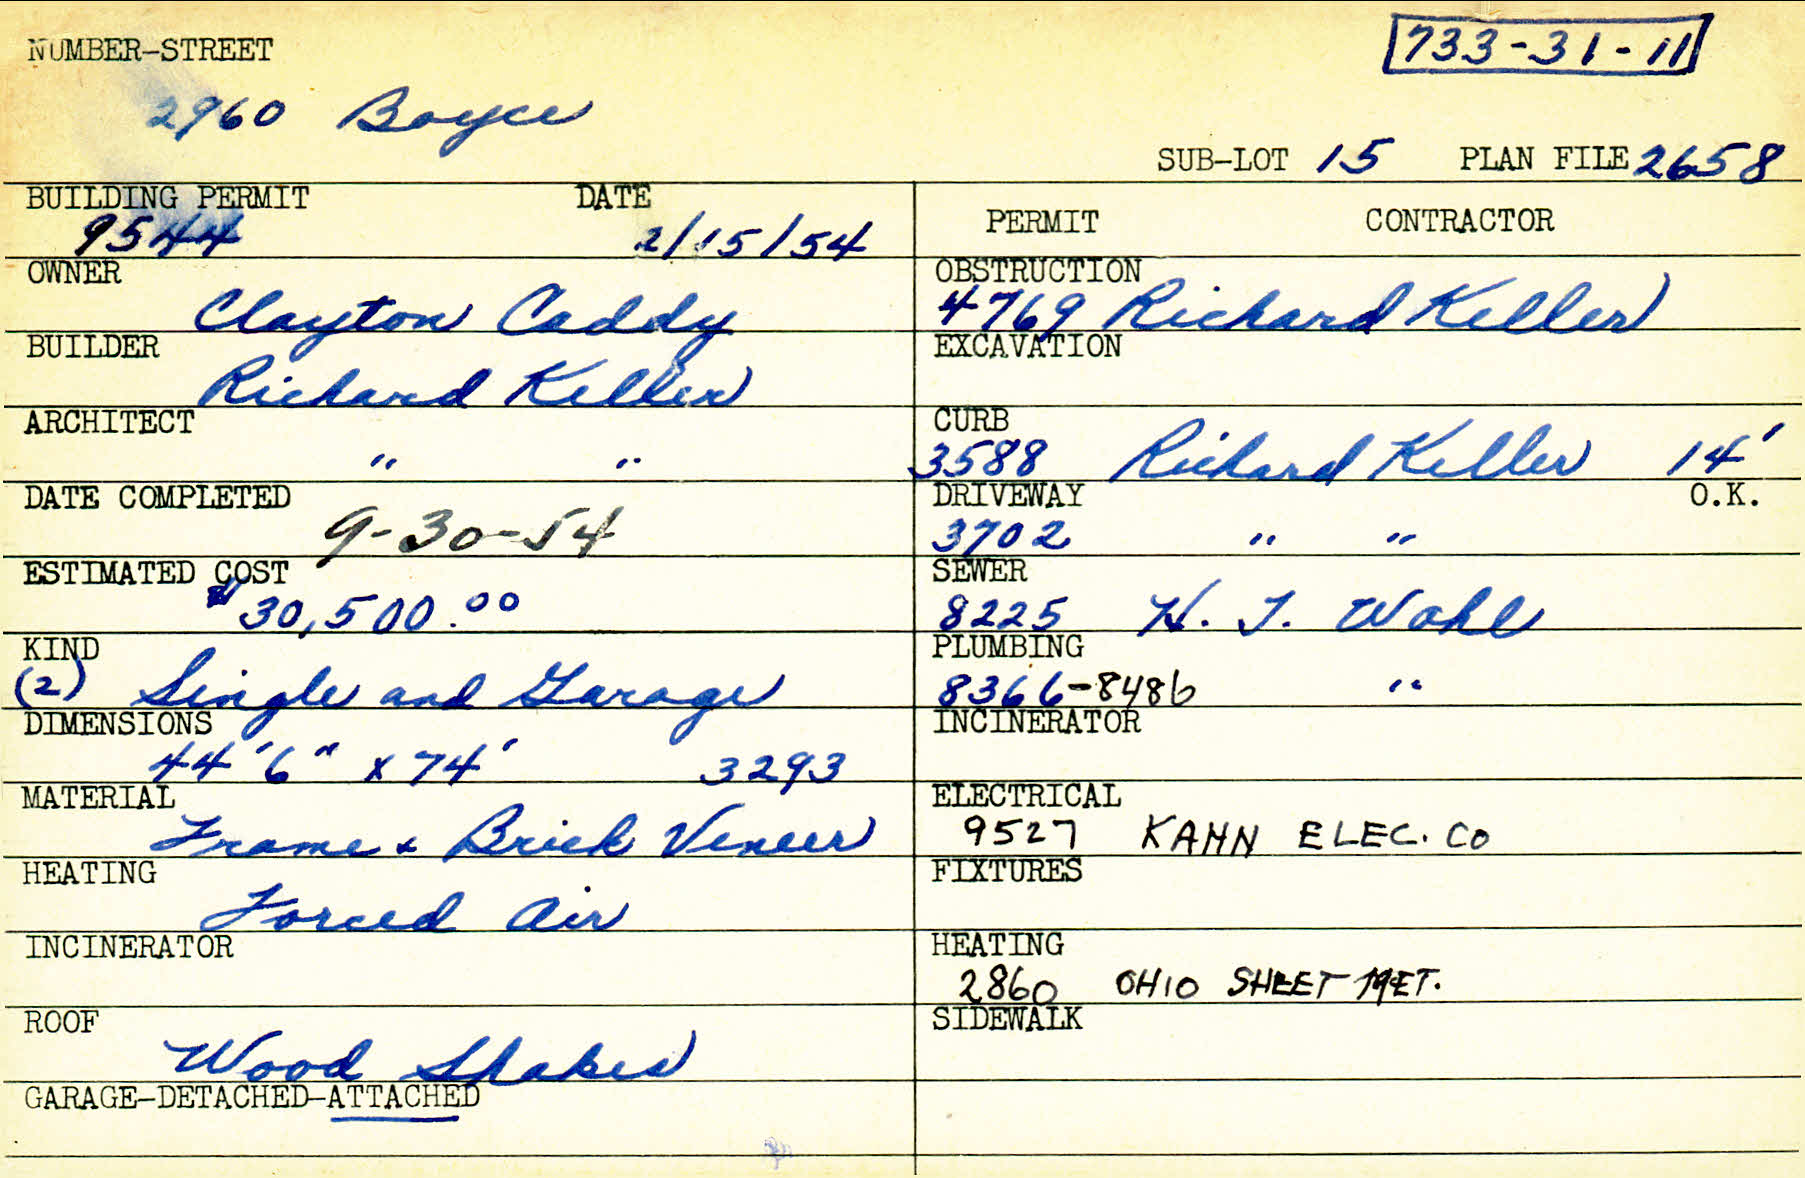 733-31-11
NUMBER-STREET
2960 Boyce
SUB-LOT 15 PLAN FILE 2658
BUILDING PERMIT DATE
9544 2/15/54
OWNER
Clayton Caddy
BUILDER
Richard Keller
ARCHITECT
" "
DATE COMPLETED
9-30-54
ESTIMATED COST
$30,500.00
KIND
(2) Single and Garage
DIMENSIONS
44'6" x 74' 3293
MATERIAL
Frame & Brick Veneer
HEATING
Forced Air
INCINERATOR
ROOF
Wood Shakes
GARAGE-DETACHED-ATTACHED
PERMIT CONTRACTOR
OBSTRUCTION
4769 Richard Keller
EXCAVATION
CURB
3588 Richard Keller 14'
DRIVEWAY O.K.
3702 " "
SEWER
8225 H. J. Wahl
PLUMBING
8366-8486 "
INCINERATOR
ELECTRICAL
9527 KAHN ELEC. CO
FIXTURES
HEATING
2860 OHIO SHEET MET.
SIDEWALK